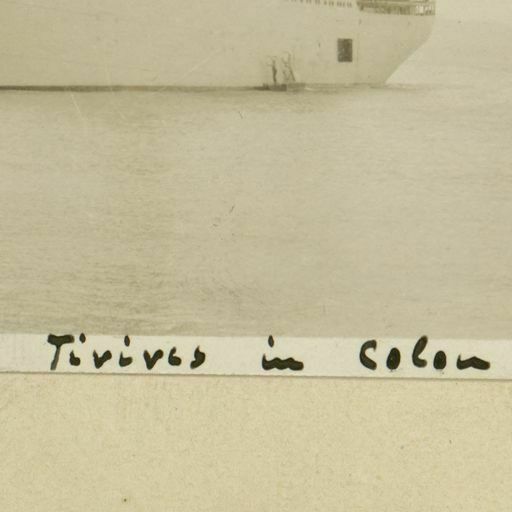 Tivives in Colon